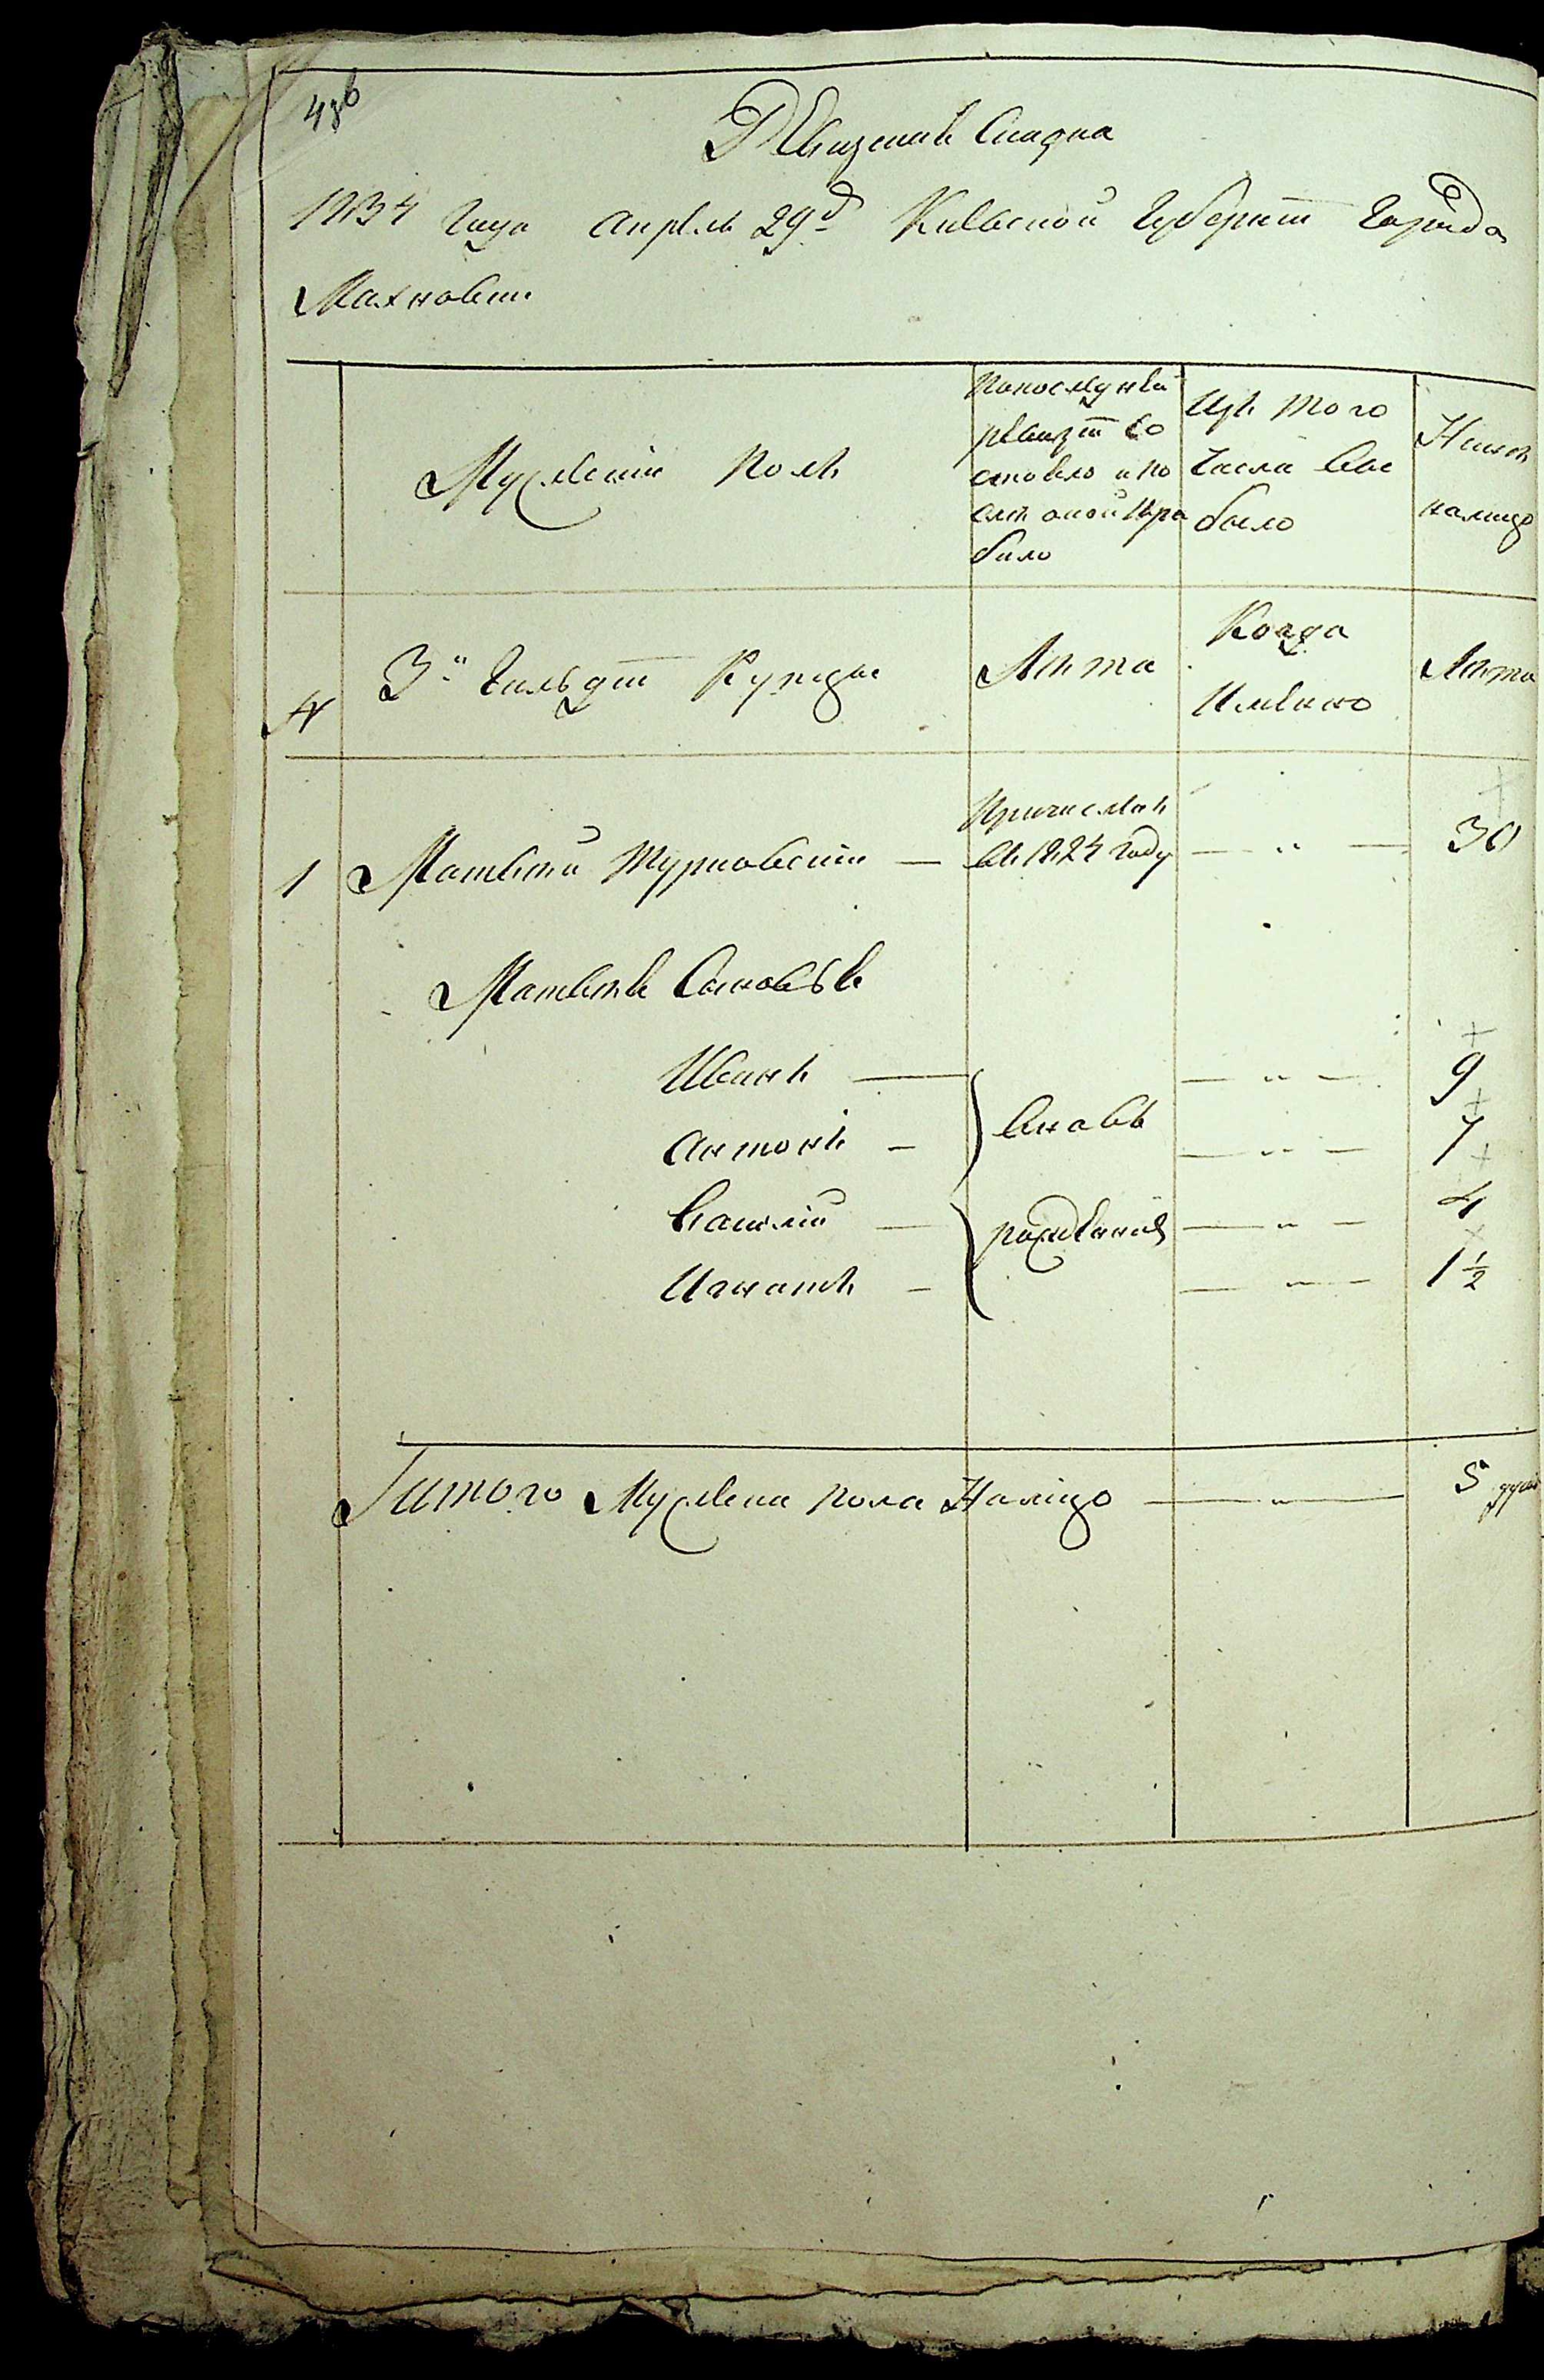 Ревизская Сказка
1834 года апреля 29 д Киевской Губернии города
Махновки
Мужеский полъ
по последней
ревизии со
стояло и по
слѣ оной при
было
Изъ того
числа вы
было
Нынѣ
налицо
№
3й Гильдии Купцы
Лѣта
Когда
Имѣнно
Лѣта
1
Матвѣй Турковский
Причисленъ
въ 1824 году
30
Матвѣя Сыновья
Иванъ
9
Антонъ
Вновь
7
Василий
рожденные
4
Игнатъ
1 1/2
Итого Мужеска пола Налицо
5 душ